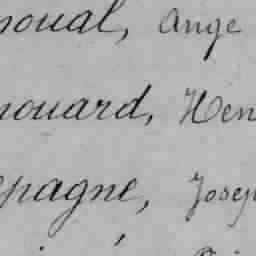 noual, Ange
nouard, Hen
epagne, Josep